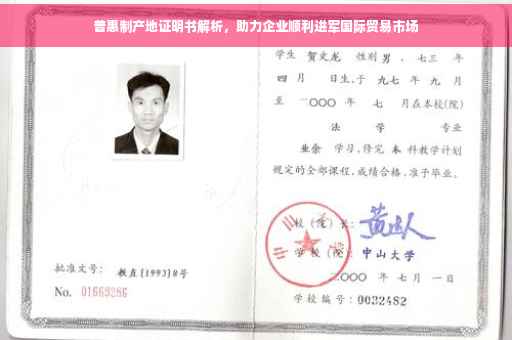 普惠制产地证明书解析，助力企业顺利进军国际贸易市场
学生 贺文龙 性别 男，七三 年
四 月 日生，于 九七 年 九 月
至 二〇〇〇 年 七 月在本校(院)
法 学 专业
业余 学习，修完 本 科教学计划
规定的全部课程，成绩合格，准予毕业。
校 (院) 长：
学 校 (院)： 中山大学
二〇〇〇 年 七 月 一 日
学校编号：0032482
批准文号： 教直(1993)8号
No. 01669286